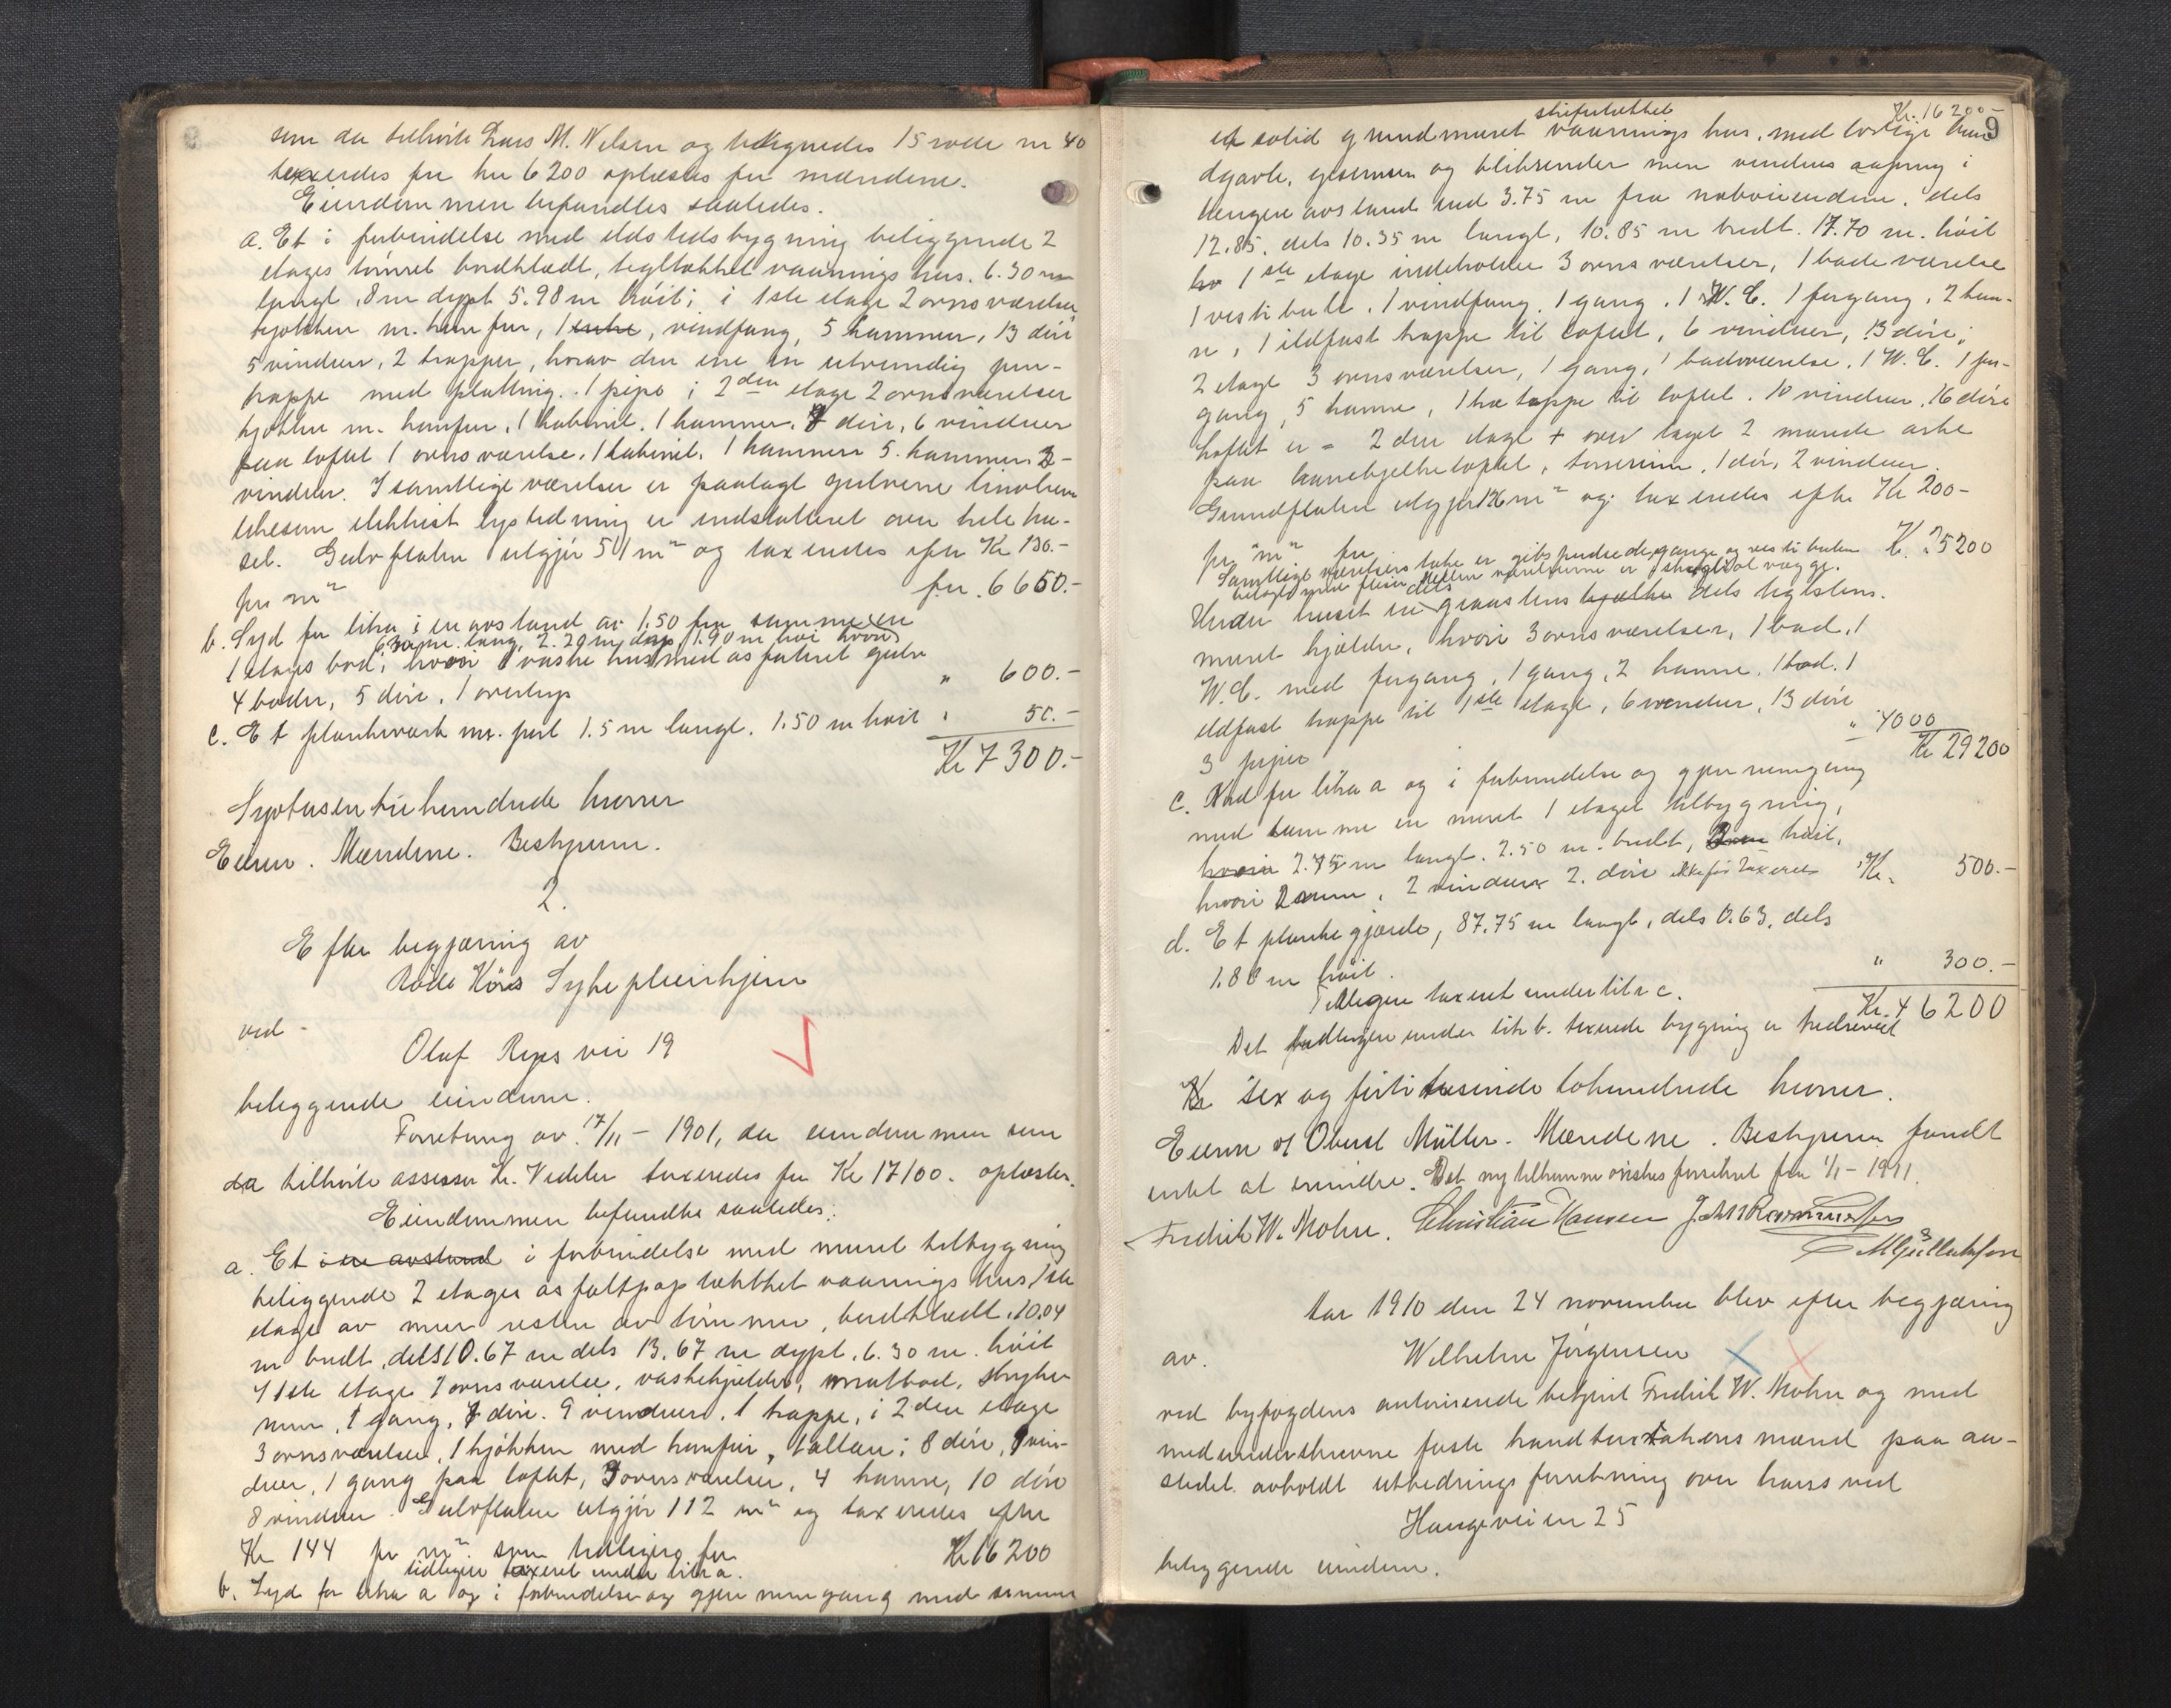 som da tilhörte Lars M. Nilsen og betegnedes 15 rode nr 40
taxerdes for kr 6200 oplæstes for mændene.
Eiendommen befandtes saaledes.
a. Et i forbindelse med ildstedsbygning beliggende 2
etages tömret bordklædt, tegltækket vaanings hus. 6.30 m
langt, 8 m dypt 5.98 m höit; i 1ste etage 2 ovnsværelser
kjökken m. komfur, 1 , vindfang, 5 kammer, 13 döre
5 vinduer, 2 trapper, horav den ene en utvendig
trappe med platning. 1 pipe i 2den etage 2 ovnsværelser
kjökken m. komfur, 1 kabinet. 1 kammer. 8 döre, 6 vinduer
paa loftet 1 ovnsværelse, 1 kabinet, 1 kammer 5. kammer 3-
vinduer. I samtlige værelser er paalagt gulvene linoleum
likesom elektrisk lysledning er indstalleret over hele hu-
set. Gulvflaten utgjör 51 m² og taxerdes efter Kr 130.-
pr m² for. 6650.-
b. Syd for litra i en avstand av 1.50 fra samme en
6.30 m. lang, 2.20 m dyp 1.90 m höi hvori
1 etages bod, hvori 1 vaske hus med asfalteret gulv
4 boder, 5 döre, 1 overlys " 600.-
c. Et plankeverk m. port 1.5 m langt. 1.50 m höit " 50.-
Kr 7300.-
Syvtusen trehundrede kroner
Eieren. Mændene. Bestyreren.
2.
Efter begjæring av
Röde Kors Sykepleierhjem
ved -
Olaf Ryes vei 19
beliggende eiendom.
Forretning av 17/11 - 1901, da eiendommen som
da tilhörte assessor Kr. Vedeler taxeredes for Kr 17100. oplæstes.
Eiendommen befandtes saaledes:
a. Et i en avstand i forbindelse med muret tilbygning
beliggende 2 etages asfaltpap tækket vaanings hus 1ste
etage av mur resten av tömmer, bordklædt. 10.04
m bredt, dels 10.67 m dels 13.67 m dypt. 6.30 m. höit
I 1ste etage 2 ovnsværelse, vaskekjelder, matbod, stryke
rum, 1 gang, 7 döre. 9 vinduer. 1 trappe, i 2den etage
3 ovnsværelser, 1 kjökken med komfur, 1 altan; 8 döre, 9 vin-
duer, 1 gang paa loftet, 3 ovnsværelser, 4 kamre, 10 döre
8 vinduer. Gulvflaten utgjör 112 m² og taxeredes efter
Kr 144 pr m² som tidligere for Kr 16200
tidligere taxeret under litra a.
b. Syd for litra a og i forbindelse og gjennemgang med samme
9
Kr. 16200-
skifertækket
et solid grundmuret vaanings hus, med
dgavle, gesimser og blikrender men vinduers aapning i
længere avstand end 3.75 m fra naboeiendom. dels
12.85, dels 10.35 m langt, 10.85 m bredt. 17.70 m. höit
1ste etage indeholder 3 ovnsværelser, 1 badeværelse
1 vestibule. 1 vindfang. 1 gang. 1 W.C. 1 forgang, 2 kam-
re, 1 ildfast trappe til loftet, 6 vinduer, 13 döre;
2 etage 3 ovnsværelser, 1 gang, 1 badeværelse. 1 W.C. 1 for-
gang, 5 kamre, 1 trappe til loftet. 10 vinduer. 16 döre
Loftet er = 2den etage + over taget 2 murede arke
paa hanebjelkeloftet, törrerum, 1 dör, 2 vinduer.
Grundflaten utgjör 126 m² og taxerdes efter Kr 200-
pr m² for Kr. 25200
Samtlige værelsers take er gibspudsede, gange og vestibulen
belagt med fliser. Mellem værelserne er vægge.
Under huset er dels graastens kjælder dels teglstens.
muret kjælder, hvori 3 ovnsværelser, 1 bad, 1
W.C. med forgang, 1 gang, 2 kamre. 1 bod. 1
ildfast trappe til 1ste etage, 6 vinduer, 13 döre
3 piper " 4000
Kr 29200
c. Nord for litra a og i forbindelse og gjennemgang
med samme en muret 1 etages tilbygning,
hvori 2.75 m langt. 2.50 m. bredt, höit,
hvori 2 rum, 2 vinduer 2. döre ikke för taxeret Kr. 500.-
d. Et planke gjærde, 87.75 m langt, dels 0.63, dels
1.80 m höit. " 300.-
Tidligere taxeret under litr c.
Kr. 46200
Det tidligere under litr b. taxerede bygning er nedrevet
Kr sex og förti tusinde tohundrede kroner.
Eieren v/ Oberst Müller. Mændene. Bestyreren fandt
intet at erindre. Det ny tilkomne önskes forsikret fra 1/1 - 1911.
Fredrik W. Mohn. Christian Hansen John Rasmussen
M Gullaksen
Aar 1910 den 24 november blev efter begjæring
av. Wilhelm Jörgensen
ved byfogdens autoriserede betjent Fredrik W. Mohn og med
medunderskrevne faste brandtaxtations mænd paa aa-
stedet avholdt utbedrings forretning over hans ved
Haugeveien 25
beliggende eiendom.